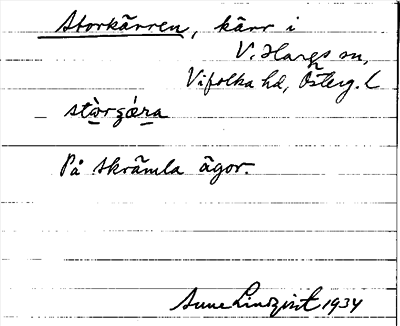 Storkärren, kärr i
V. Hargs sn,
Vifolka hd, Österg. L
stò̠rɡǽra
På Skrämla ägor.
Sune Lindqvist 1934